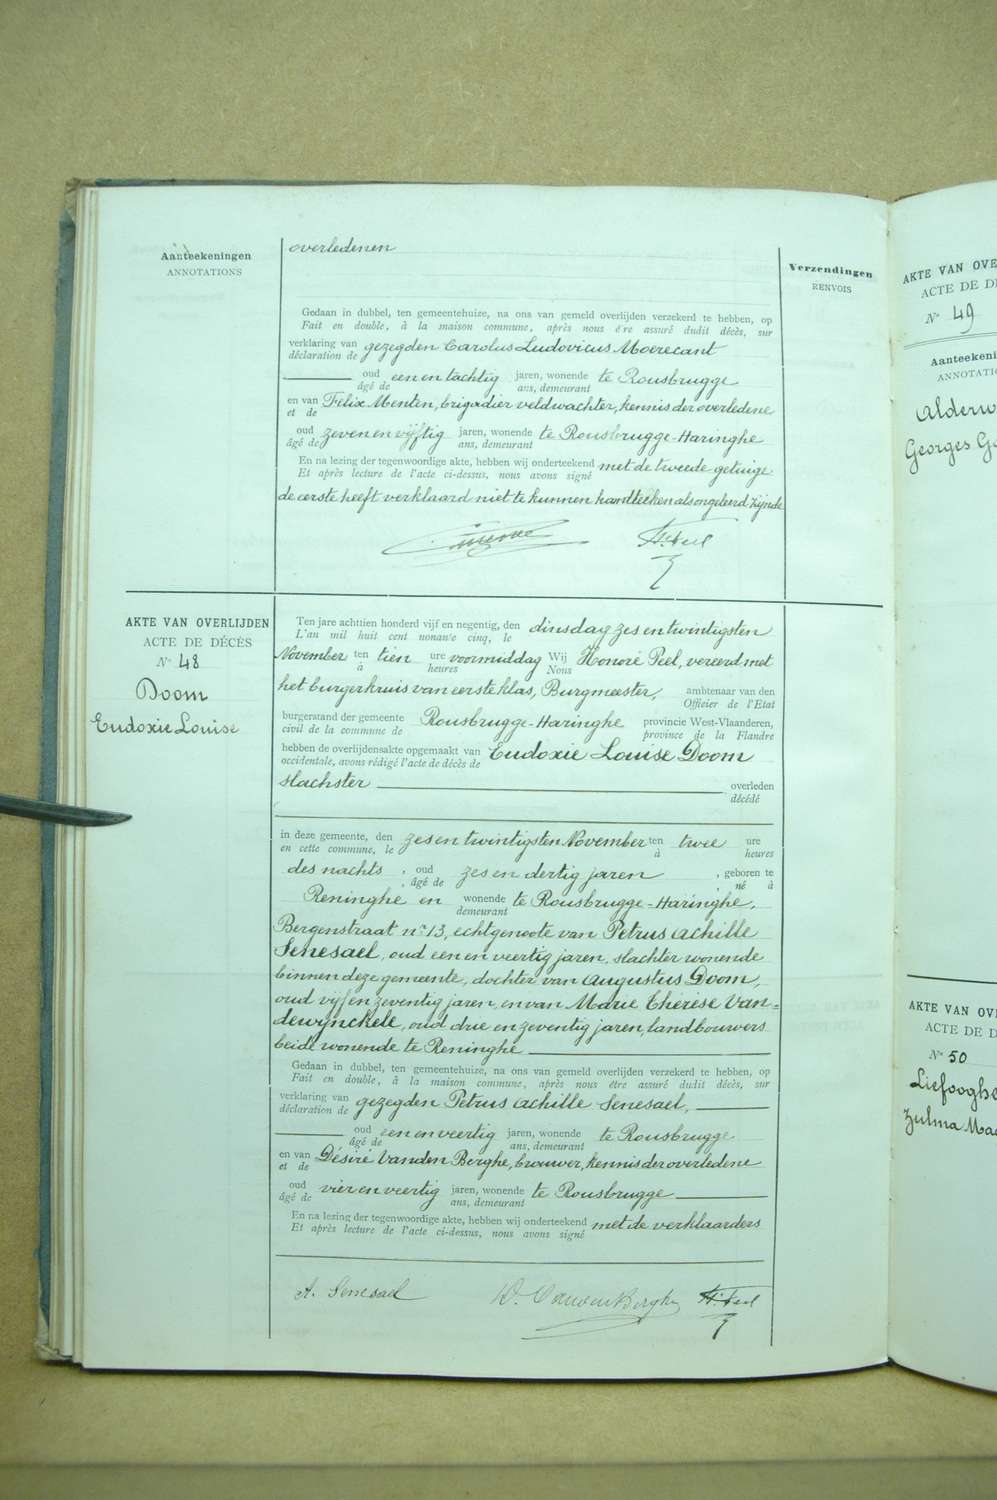 Aanteekeningen
ANNOTATIONS
overledenen
Verzendingen
RENVOIS
Gedaan in dubbel, ten gemeentehuize, na ons van gemeld overlijden verzekerd te hebben, op
Fait en double, à la maison commune, après nous être assuré dudit décès, sur
verklaring van gezegden Carolus Ludovicus Moerecant
déclaration de
oud een en tachtig jaren, wonende te Rousbrugge
âgé de ans, demeurant
en van Félix Menten, brigadier veldwachter, kennis der overledene
et de
oud zeven en vijftig jaren, wonende te Rousbrugge-Haringhe
âgé de ans, demeurant
En na lezing der tegenwoordige akte, hebben wij onderteekend met de tweede getuige
Et après lecture de l'acte ci-dessus, nous avons signé
de eerste heeft verklaard niet te kunnen handteeken als ongeleerd zijnde
H. Peel
AKTE VAN OVERLIJDEN
ACTE DE DÉCÈS
N° 48
Doom
Eudoxie Louise
Ten jare achttien honderd vijf en negentig, den dinsdag zes en twintigsten
L'an mil huit cent nonante cinq, le
November ten tien ure voormiddag Wij Honoré Peel, vereerd met
à heures Nous
het burgerkruis van eerste klas, Burgmeester, ambtenaar van den
Officier de l'Etat
burgerstand der gemeente Rousbrugge-Haringhe provincie West-Vlaanderen,
civil de la commune de province de la Flandre
hebben de overlijdensakte opgemaakt van Eudoxie Louise Doom
occidentale, avons rédigé l'acte de décès de
slachster overleden
décédé
in deze gemeente, den zes en twintigsten November ten twee ure
en cette commune, le à heures
des nachts, oud zes en dertig jaren, geboren te
âgé de né à
Reninghe en wonende te Rousbrugge-Haringhe,
demeurant
Bergenstraat n° 13, echtgenoote van Petrus Achille
Senesael, oud een en veertig jaren, slachter wonende
binnen deze gemeente, dochter van Augustus Doom,
oud vijf en zeventig jaren, en van Marie Thérèse Van=
dewynckele, oud drie en zeventig jaren, landbouwers
beide wonende te Reninghe
Gedaan in dubbel, ten gemeentehuize, na ons van gemeld overlijden verzekerd te hebben, op
Fait en double, à la maison commune, après nous être assuré dudit décès, sur
verklaring van gezegden Petrus Achille Senesael,
déclaration de
oud een en veertig jaren, wonende te Rousbrugge
âgé de ans, demeurant
en van Désiré Vanden Berghe, brouwer, kennis der overledene
et de
oud vier en veertig jaren, wonende te Rousbrugge
âgé de ans, demeurant
En na lezing der tegenwoordige akte, hebben wij onderteekend met de verklaarders
Et après lecture de l'acte ci-dessus, nous avons signé
A. Senesael D. Vanden Berghe H. Peel
AKTE VAN OVE
ACTE DE D
N° 49
Aanteekeni
ANNOTATIO
Alderw
Georges G
AKTE VAN OV
ACTE DE D
N° 50
Liefooghe
Zulma Ma